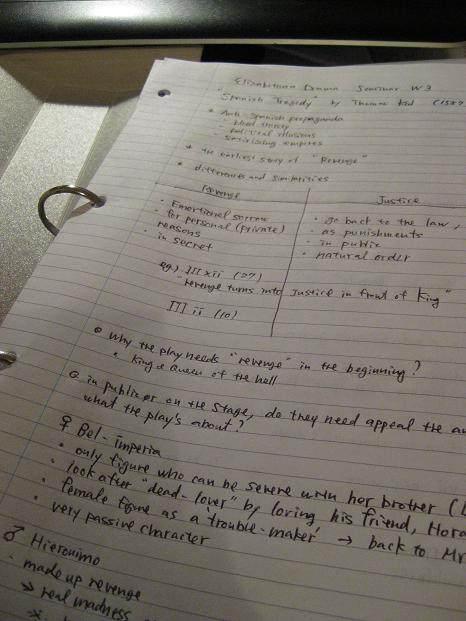 Elizabethan Drama Seminar W3
"Spanish Tragedy" by Thomas Kid (1587
* Anti-Spanish propaganda
- blood thirsty
- political illusions
- satirising empires
* the earliest story of "Revenge"
* differences and similarities
Revenge
Justice
· Emortional sorrow
· for personal (private)
reasons
· in secret
· go back to the law,
· as punishments
· in public
· natural order
eg.) III xii (27)
"revenge turns into Justice in front of King"
III ii (10)
Why the play needs "revenge" in the beginning?
· King & Queen of the hell
in public or on the stage, do they need appeal the au
what the play's about?
♀ Bel-imperia
· only figure who can be severe with her brother (L
· look after "dead-lover" by loving his friend, Hora
· female figure as a 'trouble-maker' → back to Mr
· very passive character
♂ Hieronimo
- made up revenge
→ real madness